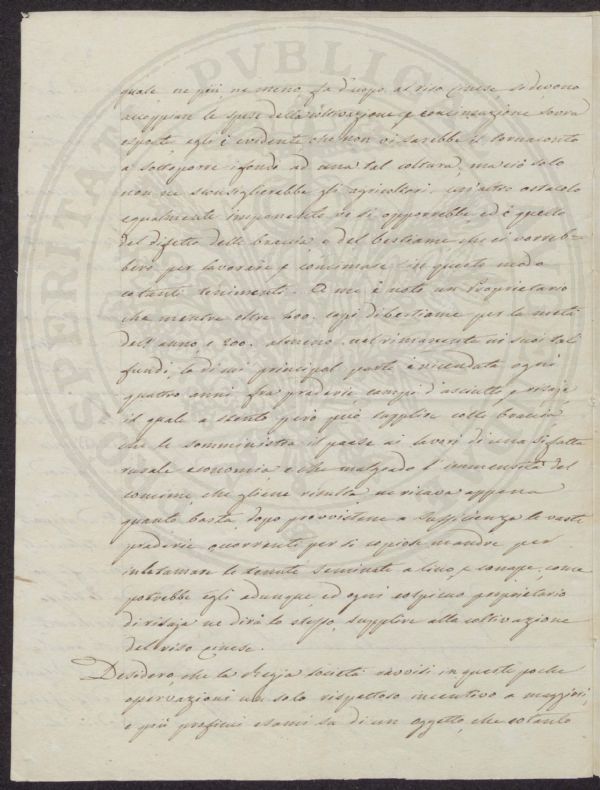 quale ne più, ne meno, fa d'uopo al riso cinese si devono
accoppiare le spese della coltivazione e concimazione sovra
esposte egli è evidente che non vi sarebbe il tornaconto
a sottoporre i fondi ad una tal coltura, ma ciò solo
non ne sconsiglierebbe gli agricoltori. Un'altro ostacolo
egualmente imponente vi si opporrebbe ed è quello
del difetto delle braccia e del bestiame che ci vorreb-
bero per lavorare e concimare in questo modo
cotanti tenimenti. A me è noto un Proprietario
che mentre oltre 400. capi di bestiame per la metà
dell'anno e 200. almeno nel rimanente ne' suoi tali
fundi, la di cui principal parte è vicendata ogni
quattro anni fra praderie campi d'asciutto, e risaje,
il quale a stento però può supplire colle braccia
che le somministra il paese ai lavori di una siffatta
rurale economia e che malgrado l'immensità del
concime, che gliene risulta ne ricava appena
quanto basta, dopo provvistene a sufficienza le vaste
praderie occorrenti per si copiose mandre per
inletamare le tenute seminate a lino, e canape, come
potrebbe egli adunque, ed ogni cospicuo proprietario
di risaja ne dirà lo stesso, supplire alla coltivazione
del riso cinese.
Desidero, che la Regia società ravvisi in queste poche
osservazioni un solo rispettoso incentivo a maggiori,
e più proficui esami su di un oggetto, che cotanto
PROSPERITATI PVBLICAE